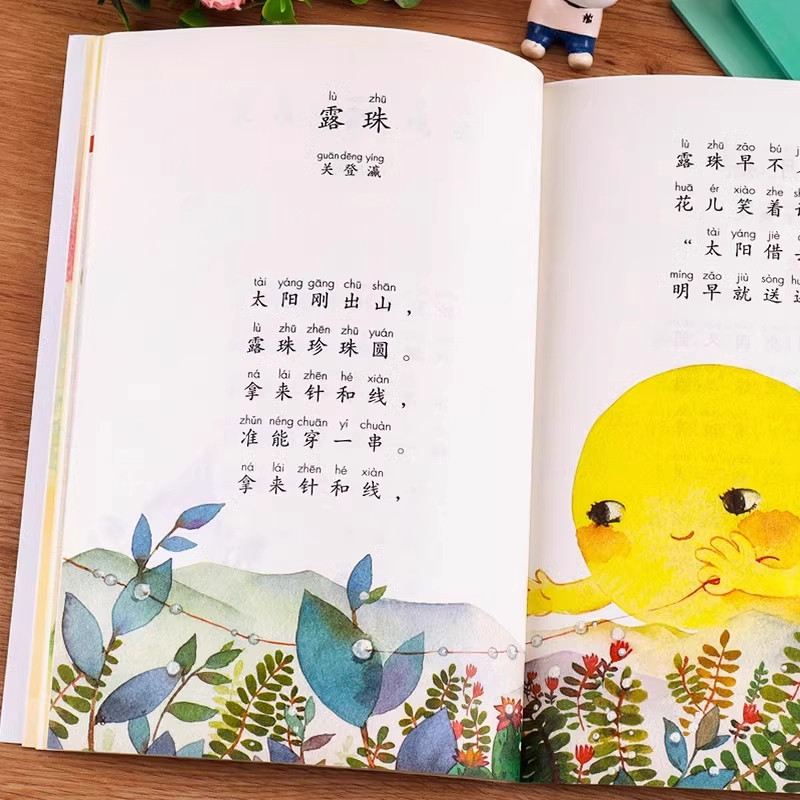 lù zhū
露珠
guān dēng yíng
关登瀛
tài yáng gāng chū shān
太阳刚出山，
lù zhū zhēn zhū yuán
露珠珍珠圆。
ná lái zhēn hé xiàn
拿来针和线，
zhǔn néng chuān yí chuàn
准能穿一串。
ná lái zhēn hé xiàn
拿来针和线，
lù zhū zǎo bú
露珠早不
huā ér xiào zhe
花儿笑着
tài yáng jiè
“太阳借
míng zǎo jiù sòng
明早就送